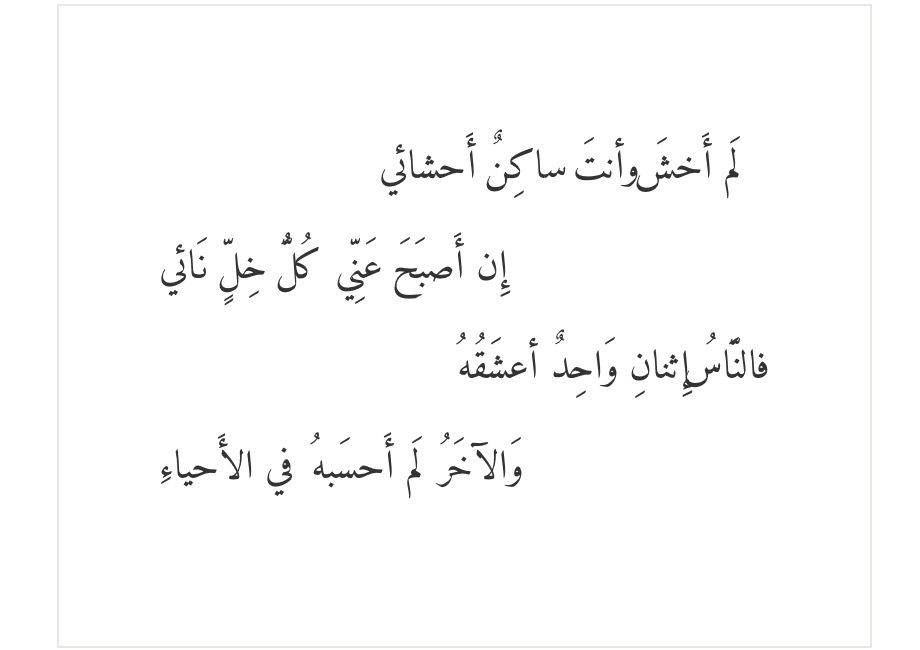 لَم أَخشَ وأنتَ ساكِنٌ أَحشائي
إِن أَصبَحَ عَنّيِ كُلُّ خِلٍّ نَائي
فالنّاسُ إِثنانِ وَاحِدٌ أعشَقُهُ
وَالآخَرُ لَم أَحسَبهُ في الأَحياءِ